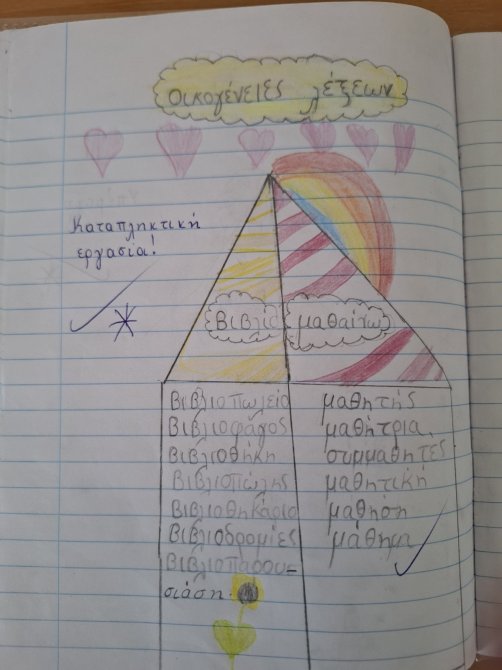 Οικογένειες λέξεων
Καταπληκτική
εργασία!
Βιβλίο
μαθαίνω
Βιβλιοπωλείο
Βιβλιοφάγος
Βιβλιοθήκη
Βιβλιοπώλης
Βιβλιοθηκάριο
Βιβλιοδρομίες
Βιβλιοπαρου=
σιάση.
μαθητής
μαθήτρια
συμμαθητές
μαθητική
μαθήση
μάθημα